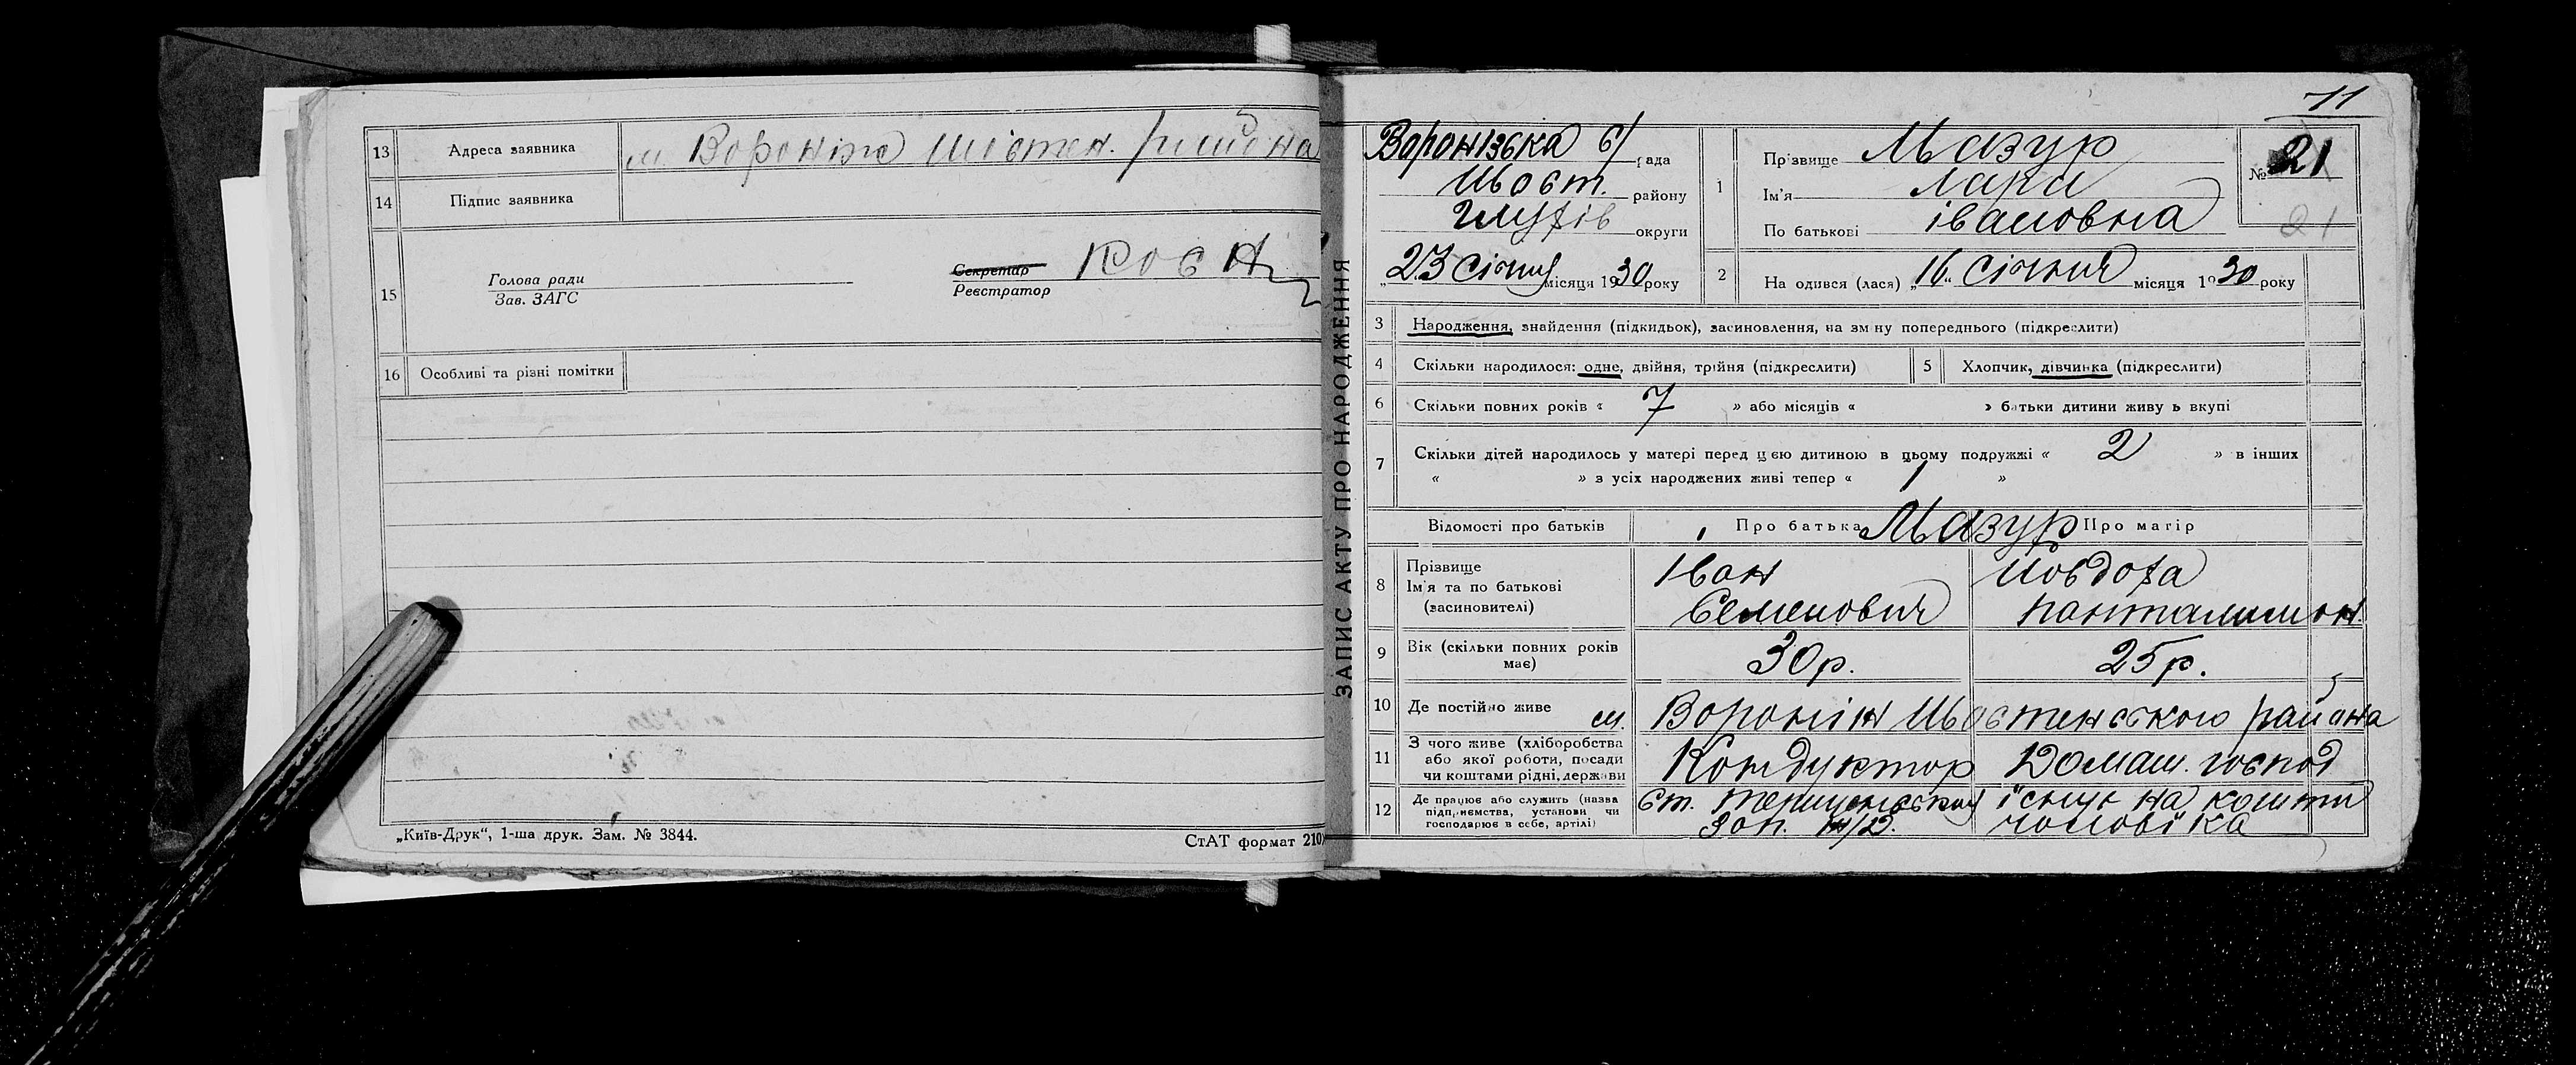 13 Адреса заявника м. Вороніж Шостен. района
14 Підпис заявника
15 Голова ради
Зав. ЗАГС
Секретар
Реєстратор
16 Особливі та різні помітки
„Київ-Друк“, 1-ша друк. Зам. № 3844.
СтАТ формат 210
ЗАПИС АКТУ ПРО НАРОДЖЕННЯ
11
Воронізька с/рада
Шост. району
Глухів округи
„23 Січня місяця 1930 року
1 Прізвище Мазур
Ім'я Лара
По батькові Івановна
№ 21
21
2 На одився (лася) „16“ Січния місяця 1930 року
3 Народження, знайдення (підкидьок), засиновлення, на зміну попереднього (підкреслити)
4 Скільки народилося: одне, двійня, трійня (підкреслити) 5 Хлопчик, дівчинка (підкреслити)
6 Скільки повних років « 7 » або місяців « » батьки дитини живуть вкупі
7 Скільки дітей народилось у матері перед цією дитиною в цьому подружжі « 2 » в інших
« » з усіх народжених живі тепер « 1 »
Відомості про батьків Про батька Мазур Про матір
8 Прізвище
Ім'я та по батькові
(засиновителі)
Іван
Семенович
Йовдоха
Панталимон.
9 Вік (скільки повних років
має)
30р. 25р.
10 Де постійно живе м. Вороніж Шостенського района
11 З чого живе (хліборобства
або якої роботи, посади
чи коштами рідні, держави
Кондуктор Домаш. господ
12 Де працює або служить (назва
підприємства, установи чи
господарює в себе, артілі)
ст.
Зап.
на кошти
чоловіка